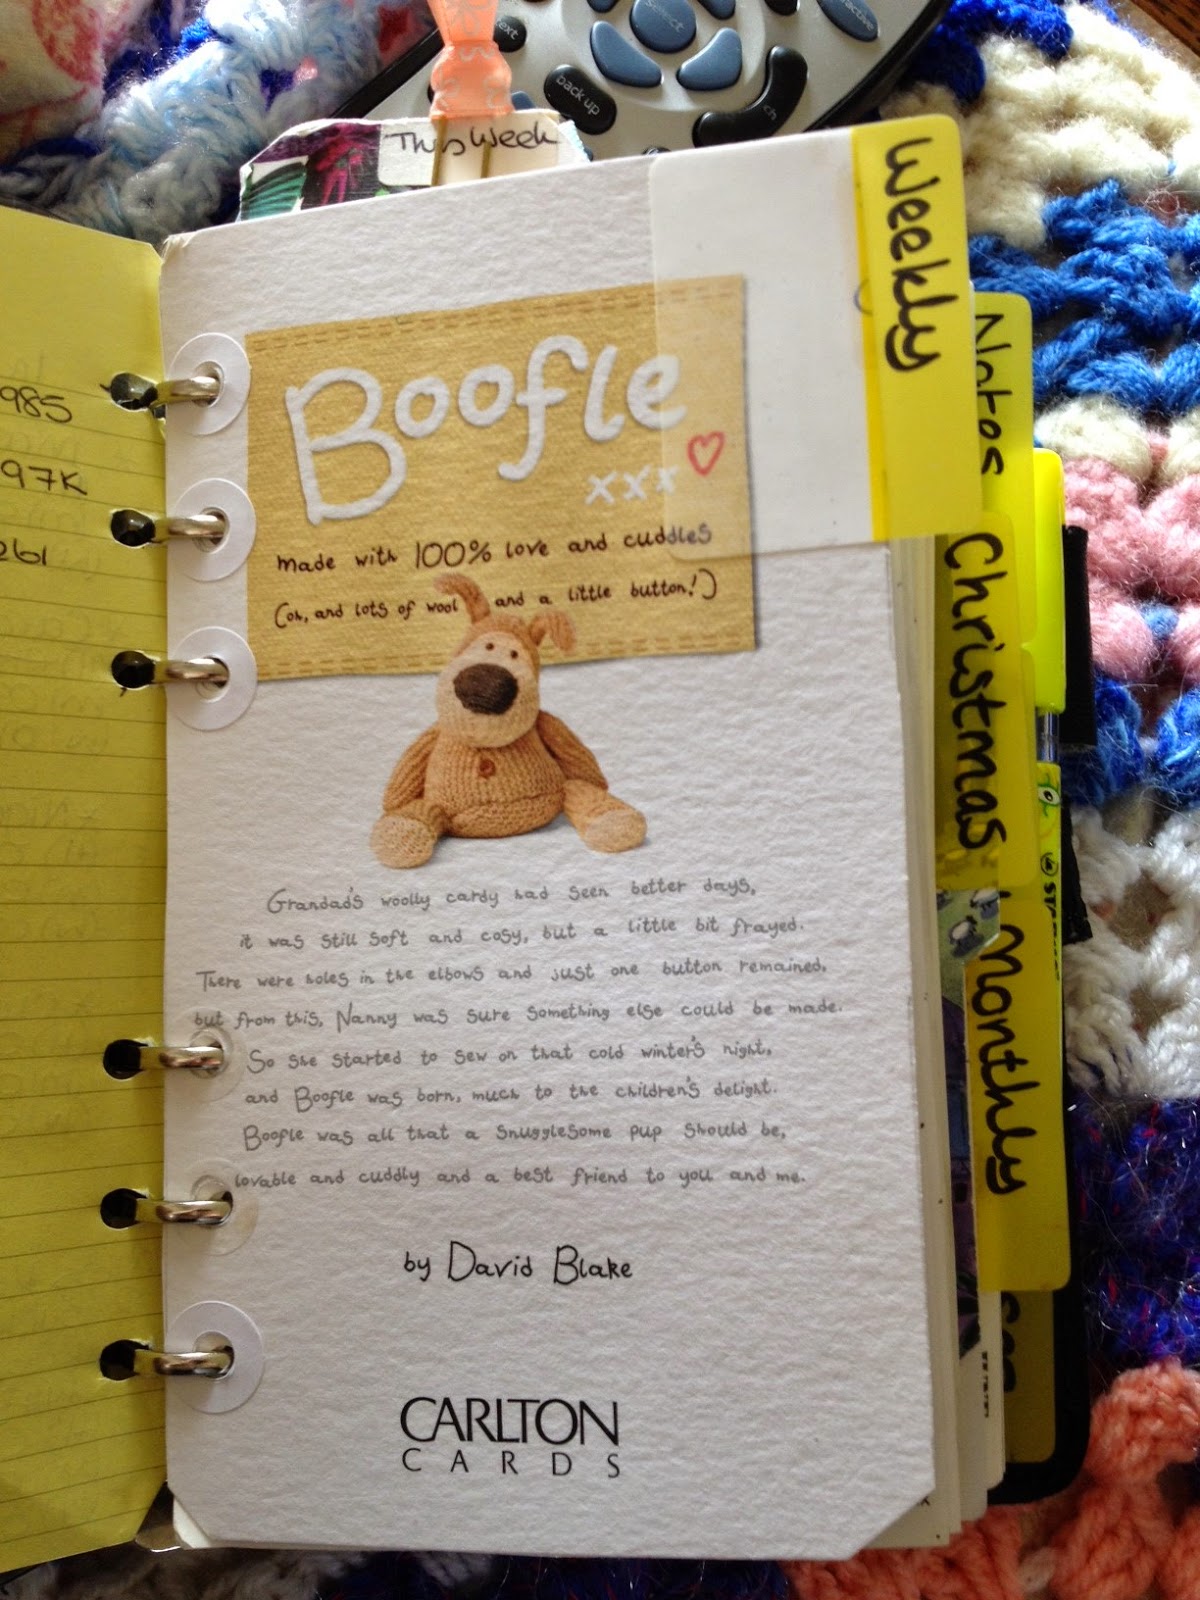 select
back up
ch
This Week
Weekly
Notes
Christmas
Monthly
985
97K
261
Boofle
xxx
made with 100% love and cuddles
(oh, and lots of wool and a little button!)
Grandad's woolly cardy had seen better days,
it was still soft and cosy, but a little bit frayed.
There were holes in the elbows and just one button remained,
but from this, Nanny was sure something else could be made.
So she started to sew on that cold winter's night,
and Boofle was born, much to the children's delight.
Boofle was all that a snugglesome pup should be,
lovable and cuddly and a best friend to you and me.
by David Blake
CARLTON
CARDS